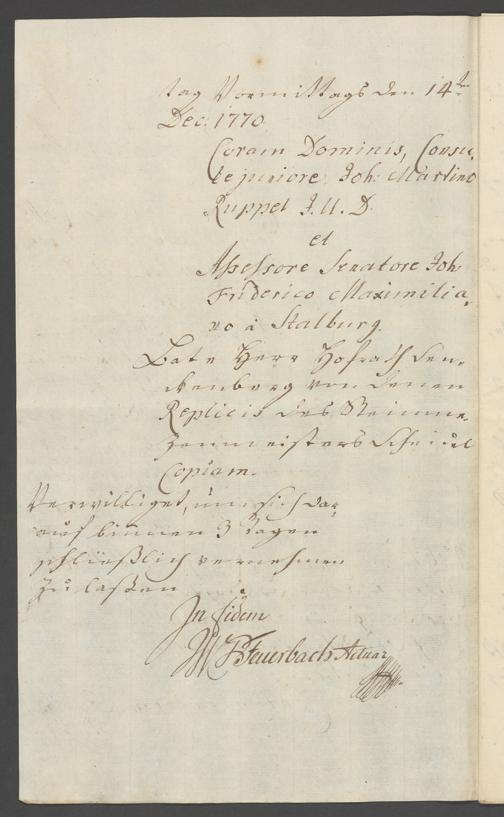 tag Vormittags den 14t.
Dec. 1770.
Coram Dominis, Consu,
le juniore Joh. Martino
Ruppel J. U. D.
et
Assessore Senatore Joh.
Friderico Maximilia,
no à Stalburg.
Bate Herr Hofrath Sen,
ckenberg von denen
Replicis des
Copiam.
Verwilliget, um sich dar,
auf binnen 3 Tagen
schließlich vernehmen
zu laßen
In fidem
Feuerbach Actuar